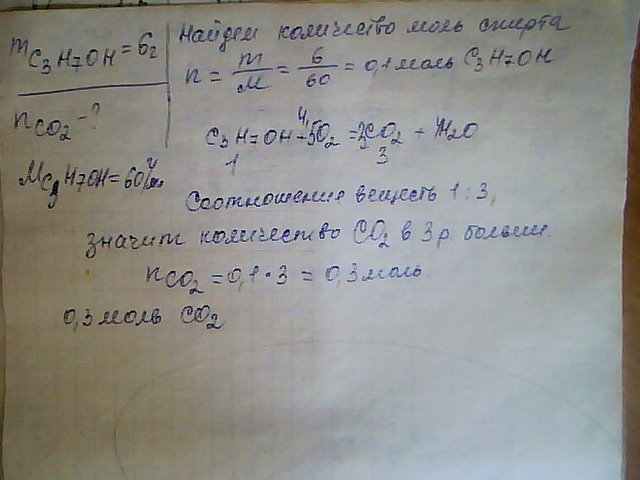 mC₃H₇OH = 6г
nCO₂ - ?
MC₃H₇OH = 60 г/моль
Найдем количество моль спирта
n = m/M = 6/60 = 0,1 моль C₃H₇OH
C₃H₇OH + O₂ = 3CO₂ + H₂O
1 3
Соотношение веществ 1 : 3,
значит количество CO₂ в 3 р. больше
nCO₂ = 0,1 · 3 = 0,3 моль
0,3 моль CO₂